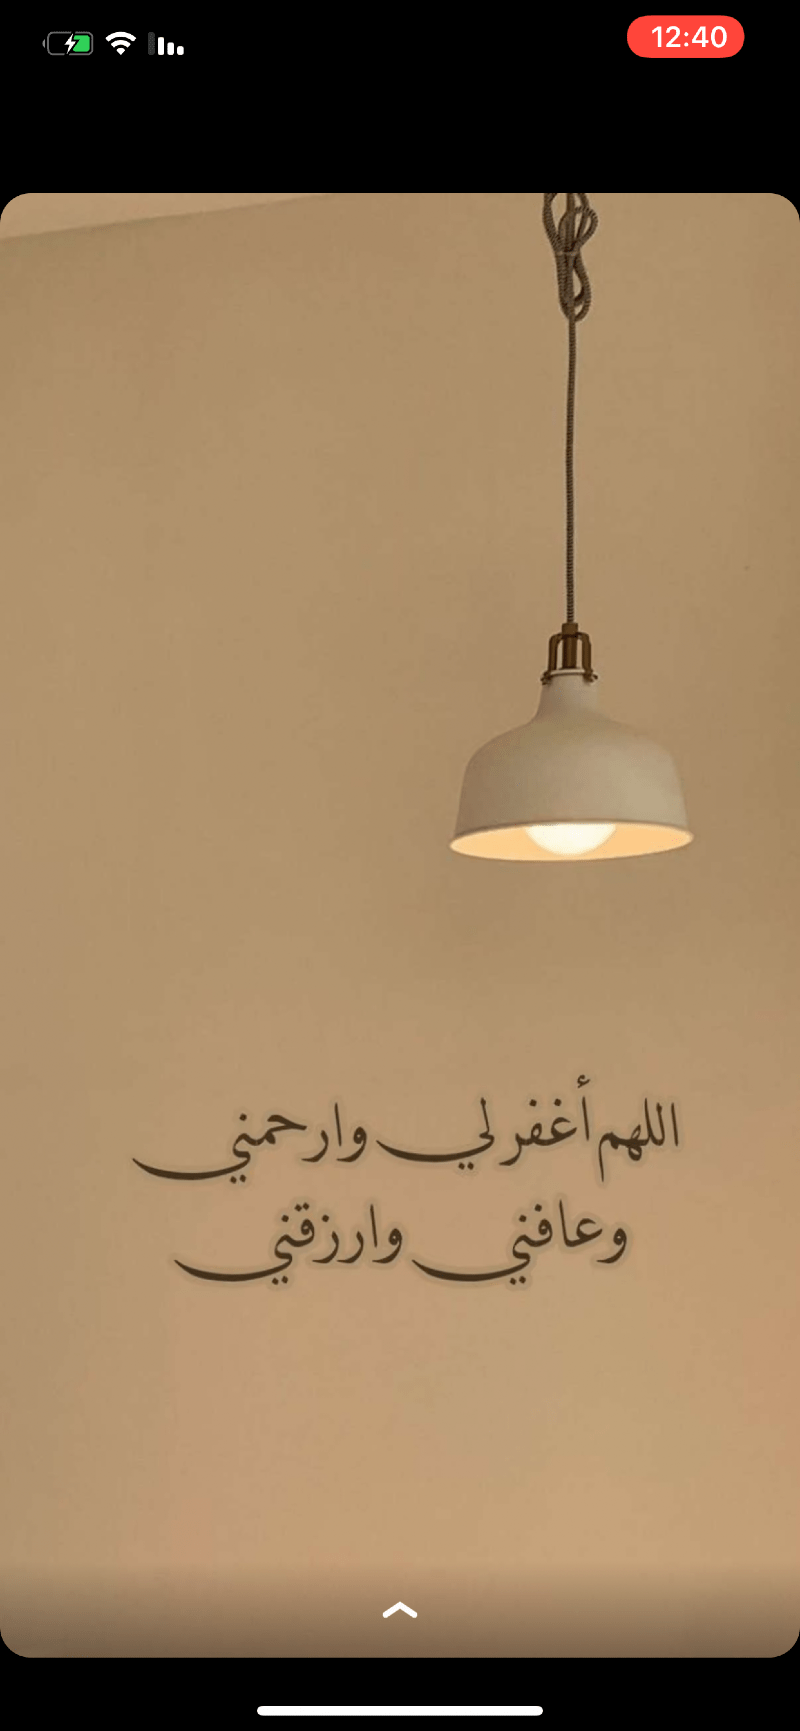 12:40
اللهم أغفر لي وارحمني
وعافني وارزقني